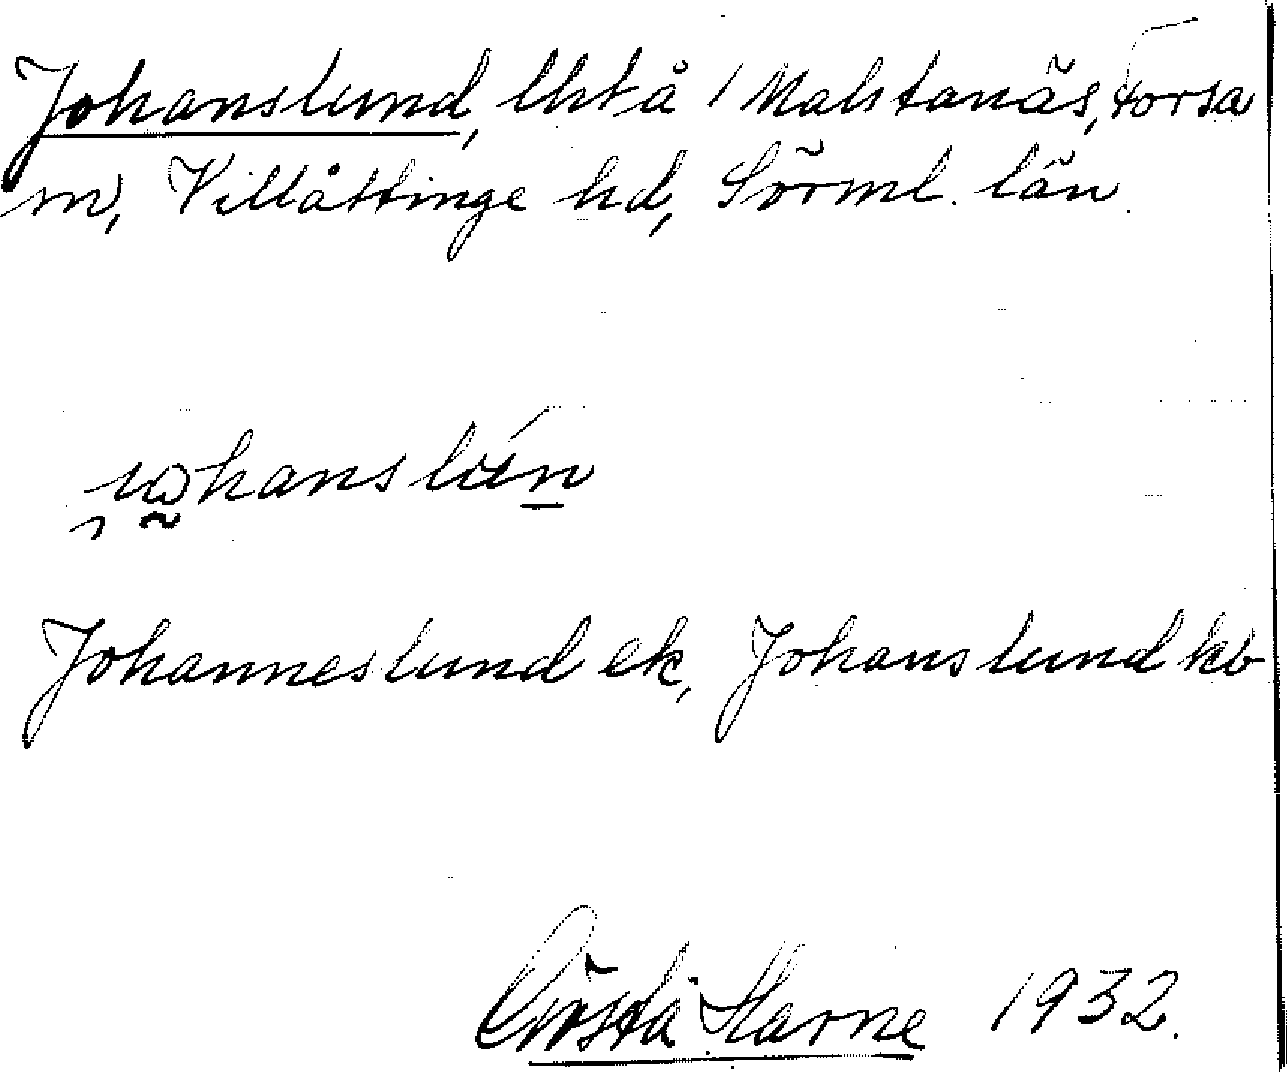 Johanslund, lht å / Malstanäs, Forsa
sn, Villåttinge hd, Sörml. län.
johanslun
Johanneslund ek, Johanslund kb
Gösta Harne 1932.